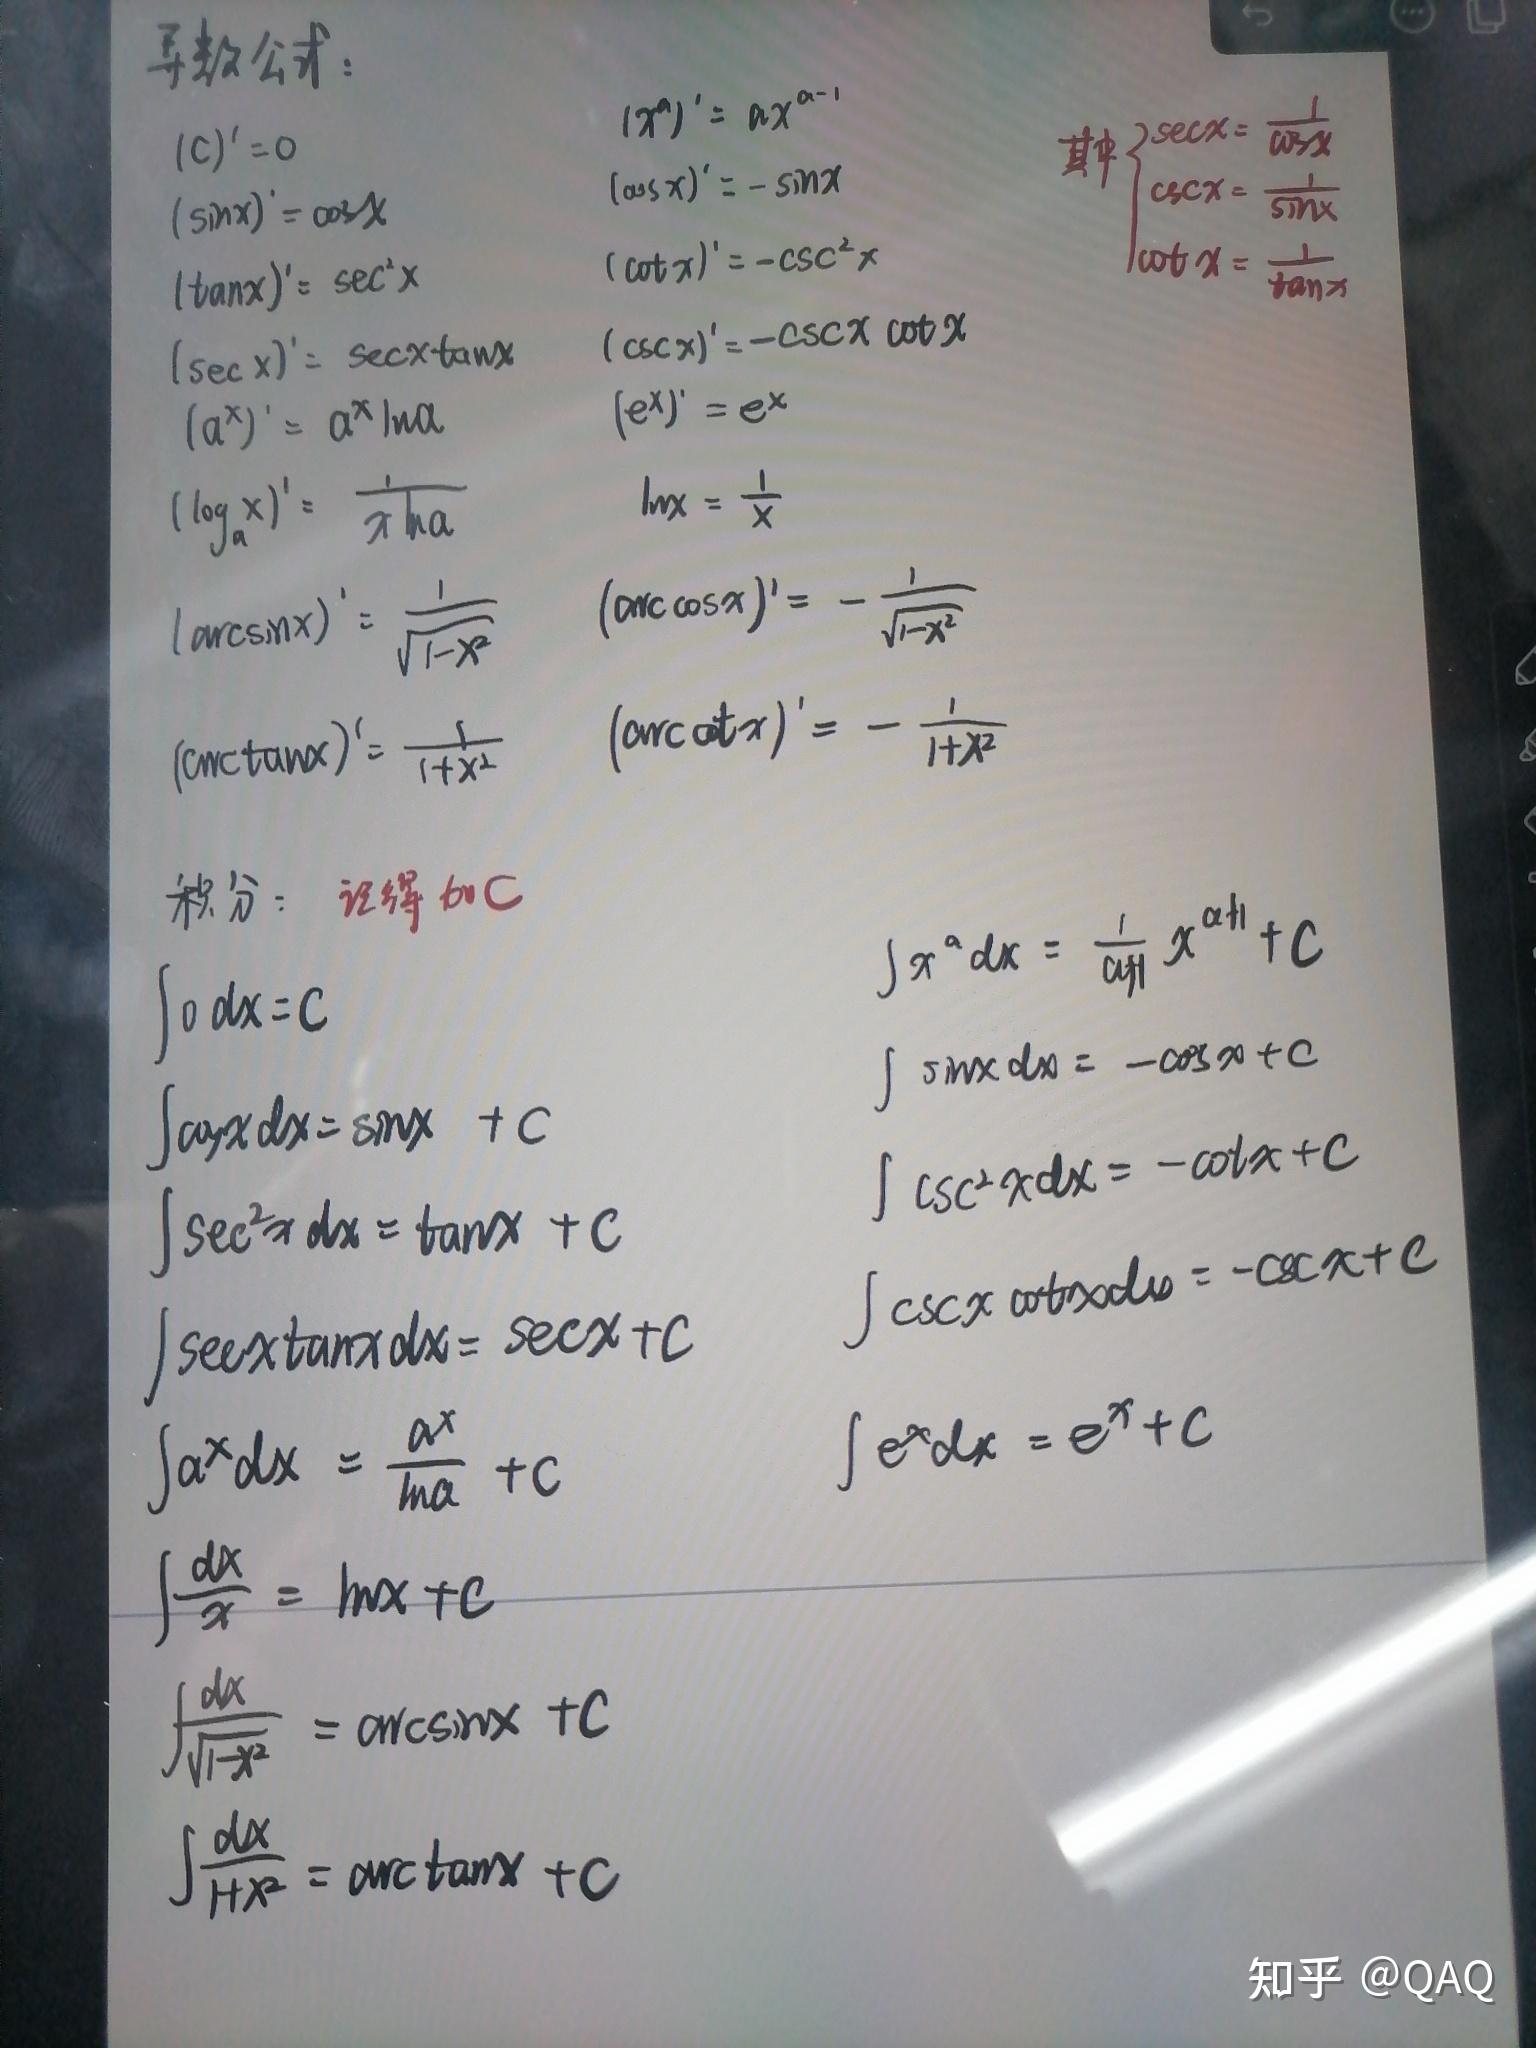 导数公式：
(C)'=0
(xᵃ)'=axᵃ⁻¹
其中{secx=1/cosx
cscx=1/sinx
cotx=1/tanx
(sinx)'=cosx
(cosx)'=-sinx
(tanx)'=sec²x
(cotx)'=-csc²x
(secx)'=secxtanx
(cscx)'=-cscx cotx
(aˣ)'=aˣlna
(eˣ)'=eˣ
(logₐx)'=1/(xlna)
lnx=1/x
(arcsinx)'=1/√(1-x²)
(arccosx)'=-1/√(1-x²)
(arctanx)'=1/(1+x²)
(arccotx)'=-1/(1+x²)
积分：记得加C
∫0dx=C
∫xᵃdx=1/(a+1) xᵃ⁺¹+C
∫cosxdx=sinx+C
∫sinxdx=-cosx+C
∫sec²xdx=tanx+C
∫csc²xdx=-cotx+C
∫secxtanxdx=secx+C
∫cscxcotxdx=-cscx+C
∫aˣdx=aˣ/lna+C
∫eˣdx=eˣ+C
∫dx/x=lnx+C
∫dx/√(1-x²)=arcsinx+C
∫dx/(1+x²)=arctanx+C
知乎 @QAQ